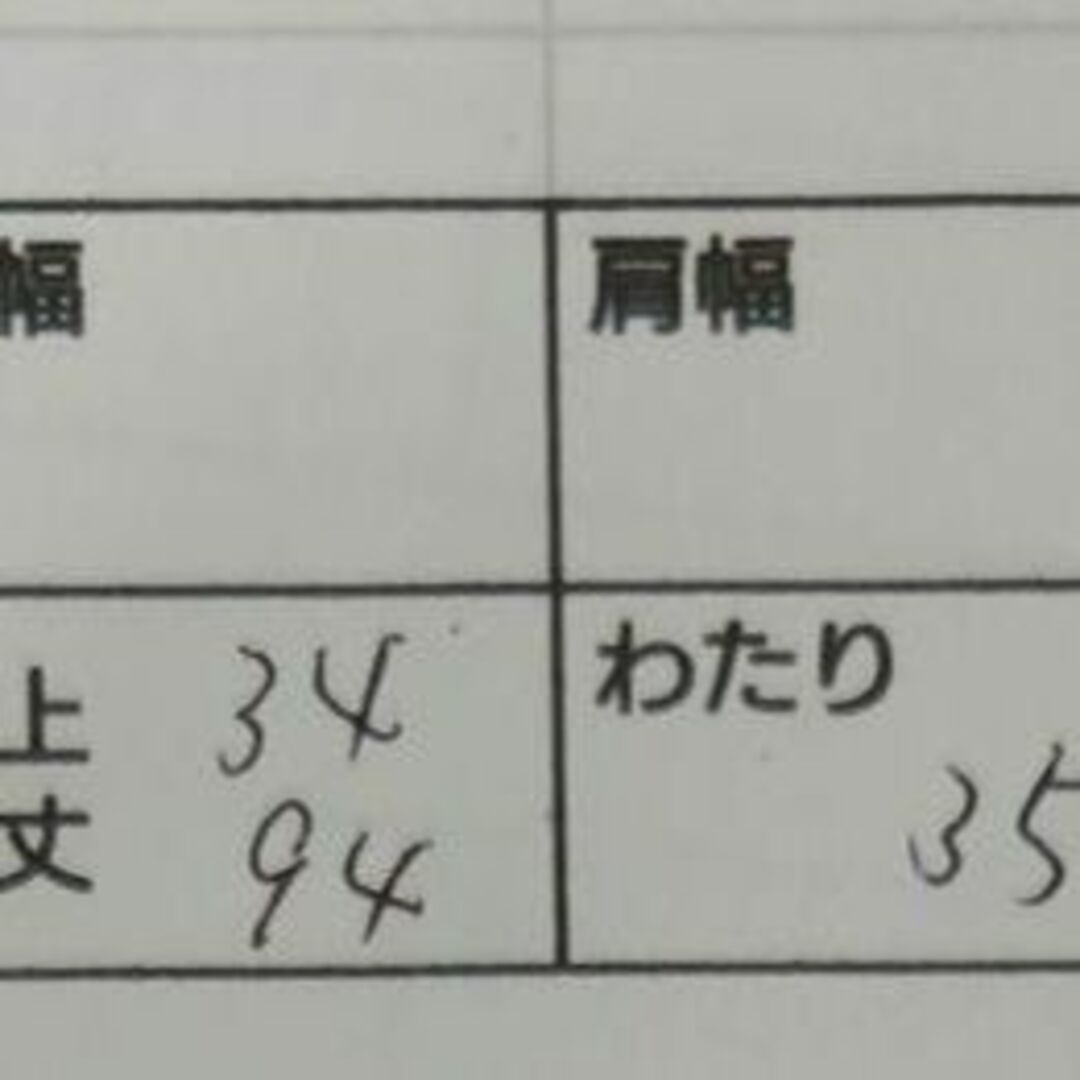 幅
肩幅
上 34
丈 94
わたり
35